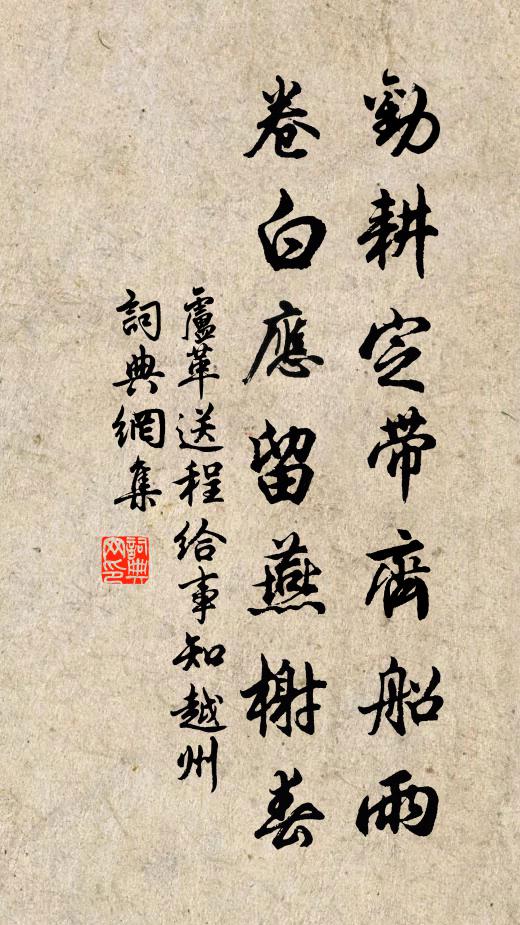 勸耕定帶齊船雨
卷白應留燕榭春
盧革送程給事知越州
詞典網集
詞典网印